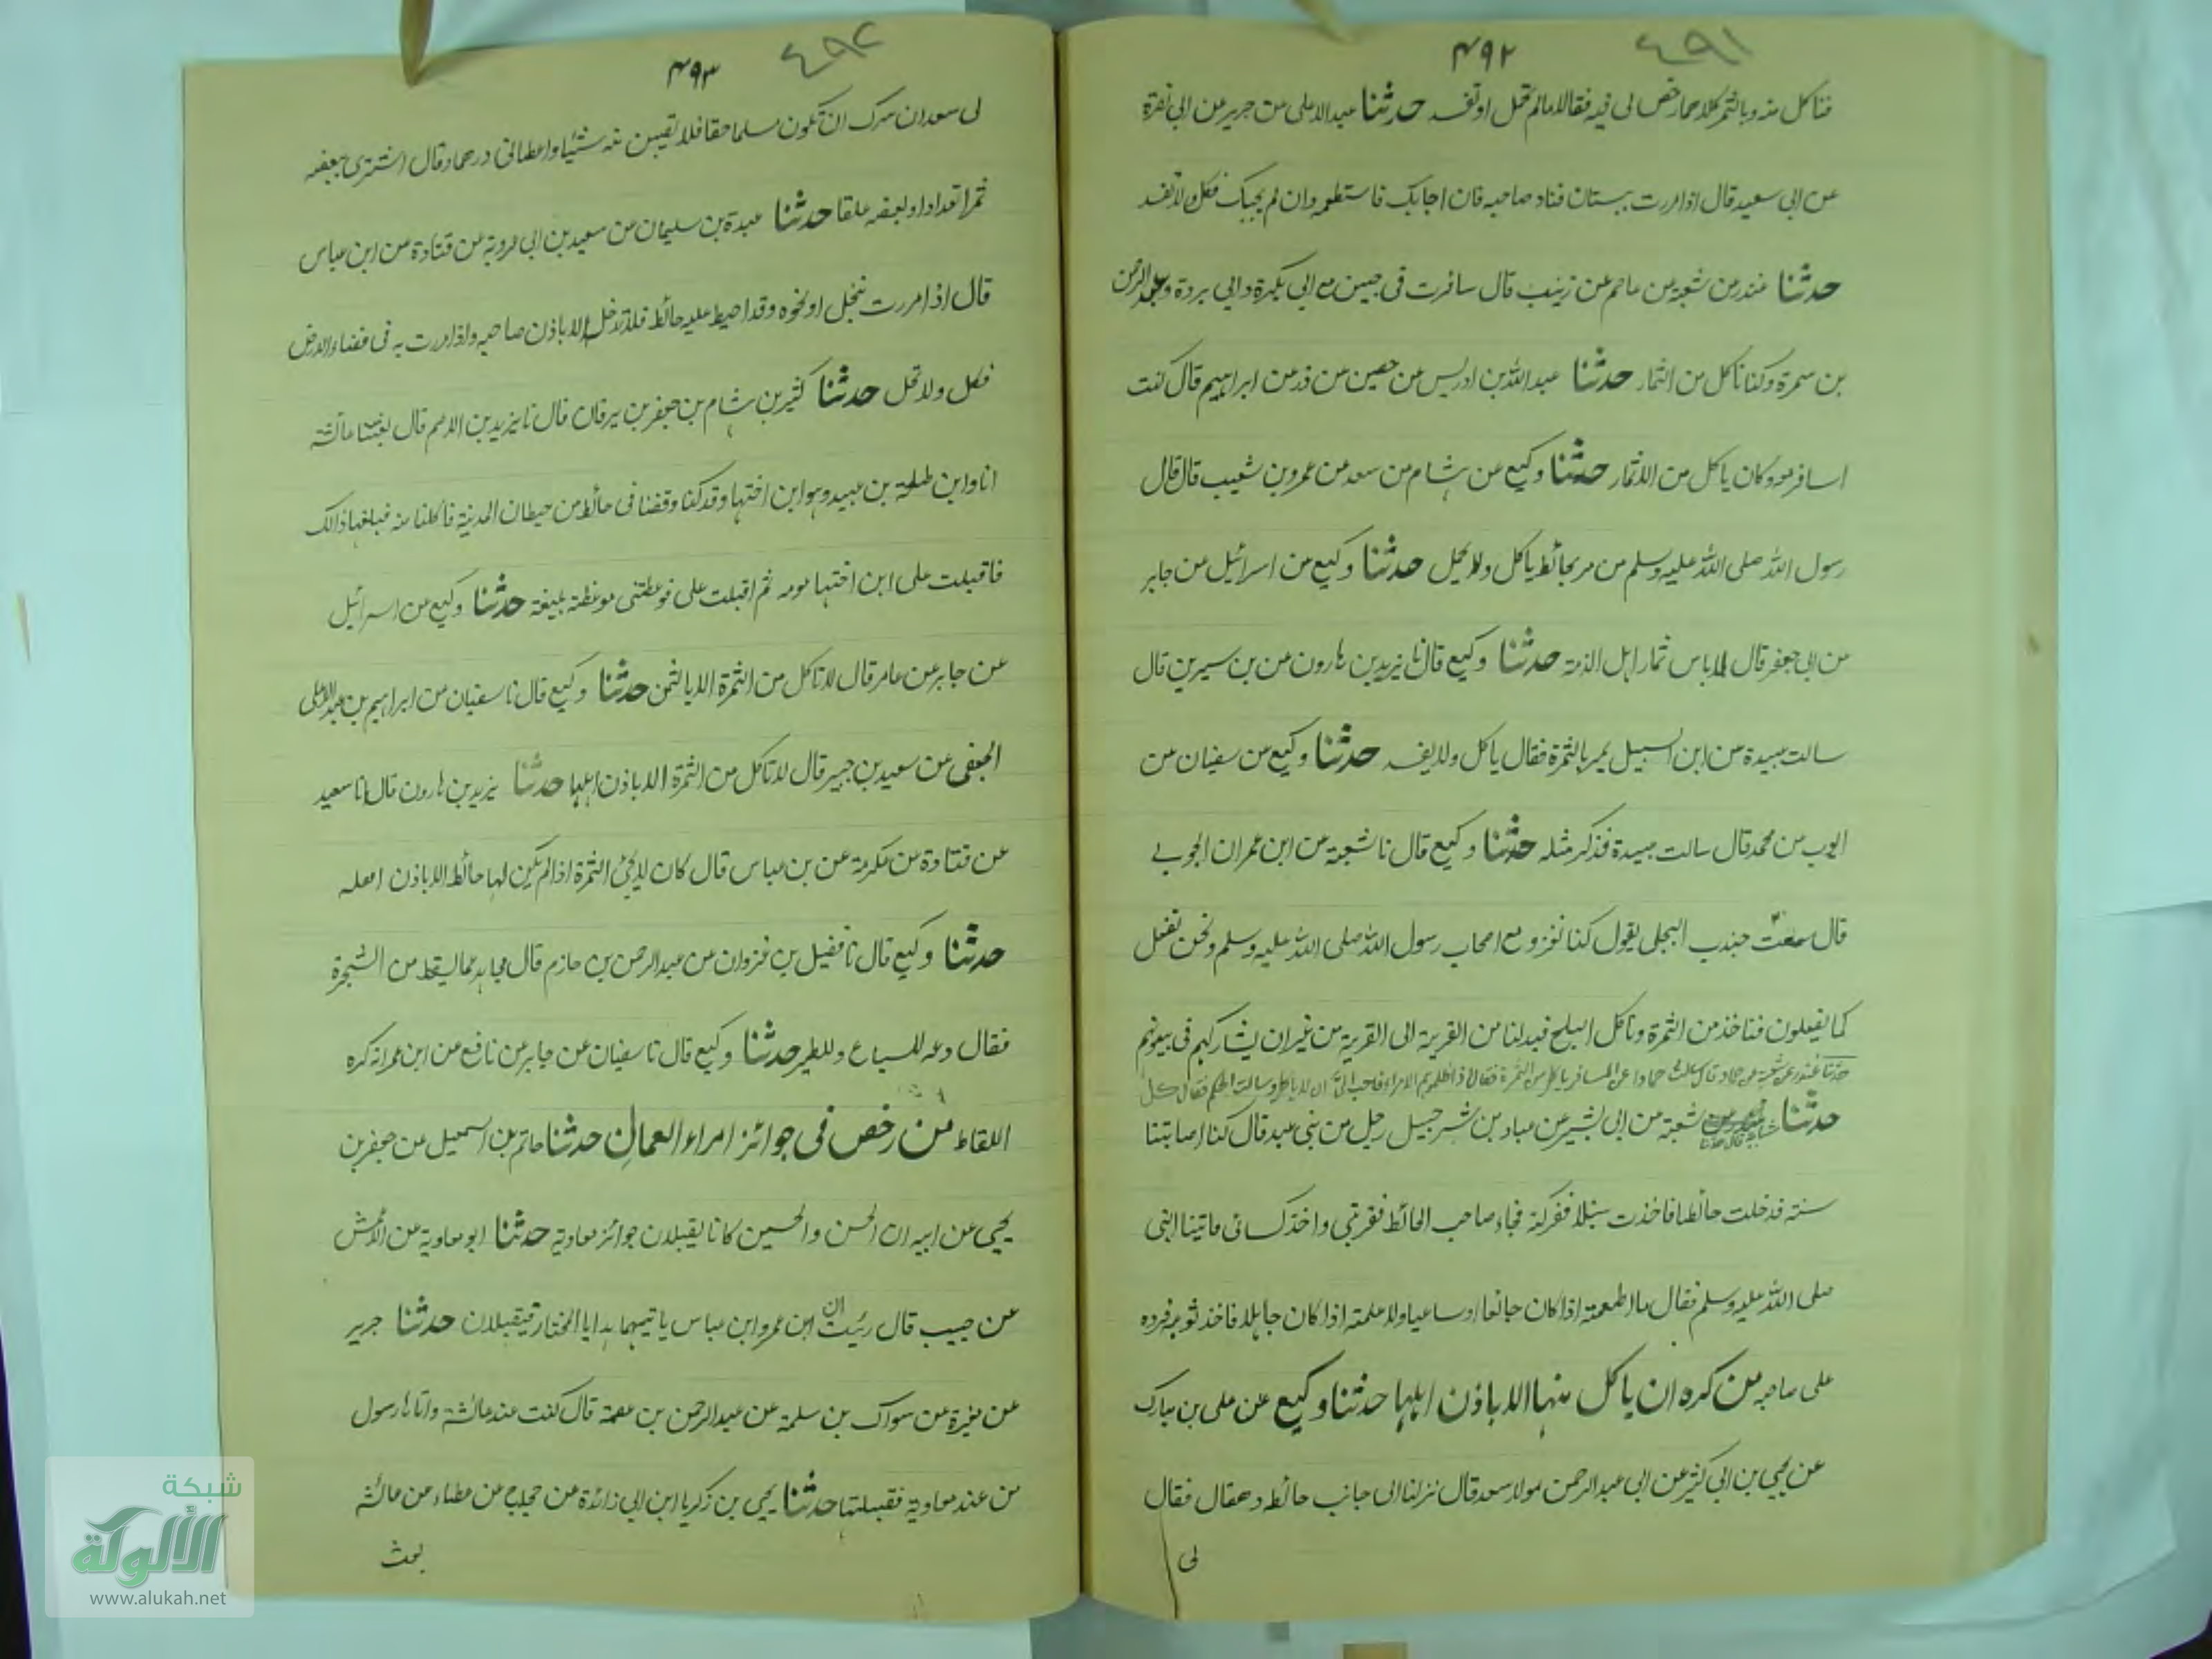 ٤٩١
۴۹۲
فناكل منه وبالثمر كلاهما رخص لى فيه فقالا مالم تحمل او تفسد حدثنا عبد الاعلى عن جرير عن ابى نضرة
عن ابى سعيد قال اذا مررت ببستان فناد صاحبه فان اجابك فاستطعمه وان لم يجبك فكل ولا تفسد
حدثنا غندر عن شعبة عن عاصم عن زينب قال سافرت فى جيش مع ابي بكرة وابي بردة وعبد الرحمن
بن سمرة وكنا ناكل من الثمار حدثنا عبد الله بن ادريس عن حصين عن ذر عن ابراهيم قال كنت
اسافر معه وكان ياكل من الاثمار حدثنا وكيع عن هشام من سعد عن عمرو بن شعيب قال قال
رسول الله صلى الله عليه وسلم من مر بحائط ياكل ولا يحمل حدثنا وكيع عن اسرائيل عن جابر
عن ابى جعفر قال لا باس ثمار اهل الذمة حدثنا وكيع قال نا يزيد بن هارون عن بن سيرين قال
سالت عبيدة عن ابن السبيل يمر بالثمرة فقال ياكل ولا يفسد حدثنا وكيع عن سفيان عن
ايوب عن محمد قال سالت عبيدة فذكر مثله حدثنا وكيع قال نا شعبة عن ابن عمران الجوبي
قال سمعت جندب البجلى يقول كنا نغزو مع اصحاب رسول الله صلى الله عليه وسلم ونحن نفعل
كما يفعلون فناخذ من الثمرة وناكل البلح فيدلنا من القرية الى القرية من غير ان يشاركهم فى بيوتهم
حدثنا غندر عن شعبة قال سالت حمادا عن المسافر ياكل من الثمرة فقال
حدثنا شعبة عن ابى بشير عن عباد بن شرحبيل رجل من بنى عبد قال كنا اصابتنا
سنة فدخلت حائطا فاخذت سنبلا ففركته فجاء صاحب الحائط فضربنى واخذ كسائى فاتينا النبى
صلى الله عليه وسلم فقال ما اطعمته اذا كان جائعا او ساعيا ولا علمته اذا كان جاهلا فاخذ ثوبه فرده
على صاحبه من كره ان ياكل منها الا باذن اهلها حدثنا وكيع عن على بن مبارك
عن يحيى بن ابى كثير عن ابى عبد الرحمن مولا سعد قال نزلنا الى جانب حائط دهقان فقال
لى
٤٩٢
۴۹۳
لى سعد ان سرك ان تكون مسلما حقا فلا تصيبن منه شيئا واعطانى درهما وقال اشترى ببعضه
تمرا قداد او ببعضه علقا حدثنا عبدة بن سليمان عن سعيد بن ابى عروبة عن قتادة عن ابن عباس
قال اذا مررت بنخل او نحوه وقد احيط عليه حائط فلا تدخل الا باذن صاحبه واذا مررت به فى فضاء الارض
فكل ولا تحمل حدثنا كثير بن هشام بن جعفر بن برقان قال نا يزيد بن الاصم قال لقيت عائشة
انا وابن طلحة بن عبيد وهو ابن اختها وقد كنا وقفنا فى حائط من حيطان المدينة فاكلنا منه فبلغها ذالك
فاقبلت على ابن اختها لومه ثم اقبلت على فوعظتنى موعظة بليغة حدثنا وكيع عن اسرائيل
عن جابر عن عامر قال لا تاكل من الثمرة الا بالثمن حدثنا وكيع قال نا سفيان عن ابراهيم بن عبد الاعلى
الجعفى عن سعيد بن جبير قال لا تاكل من الثمرة الا باذن اهلها حدثنا يزيد بن هارون قال انا سعيد
عن قتادة عن عكرمة عن بن عباس قال كان الثمرة اذا لم يكن لها حائط الا باذن اهله
حدثنا وكيع قال نا فضيل بن غزوان عن عبد الرحمن بن حازم قال مجاهد عما يسقط من الشجرة
فقال دعه للسباع وللطير حدثنا وكيع قال نا سفيان عن جابر عن نافع عن ابن عمر انه كره
اللقاط من رخص فى جوائز امراء العمال حدثنا حاتم بن اسمعيل عن جعفر بن
يحيى عن ابيه ان الحسن والحسين كانا يقبلان جوائز معاوية حدثنا ابو معاوية عن الاعمش
عن حبيب قال رئيت ان ابن عمر وابن عباس ياتيهما هدايا المختار فيقبلان حدثنا جرير
عن مغيرة عن سواك بن سلمة عن عبد الرحمن بن عصمة قال كنت عند عائشة واتاها رسول
من عند معاوية فقبلتها حدثنا يحيى بن زكريا ابن ابى زائدة عن حجاج عن عطاء عن عائشة
بعث
شبكة
الألوكة
www.alukah.net